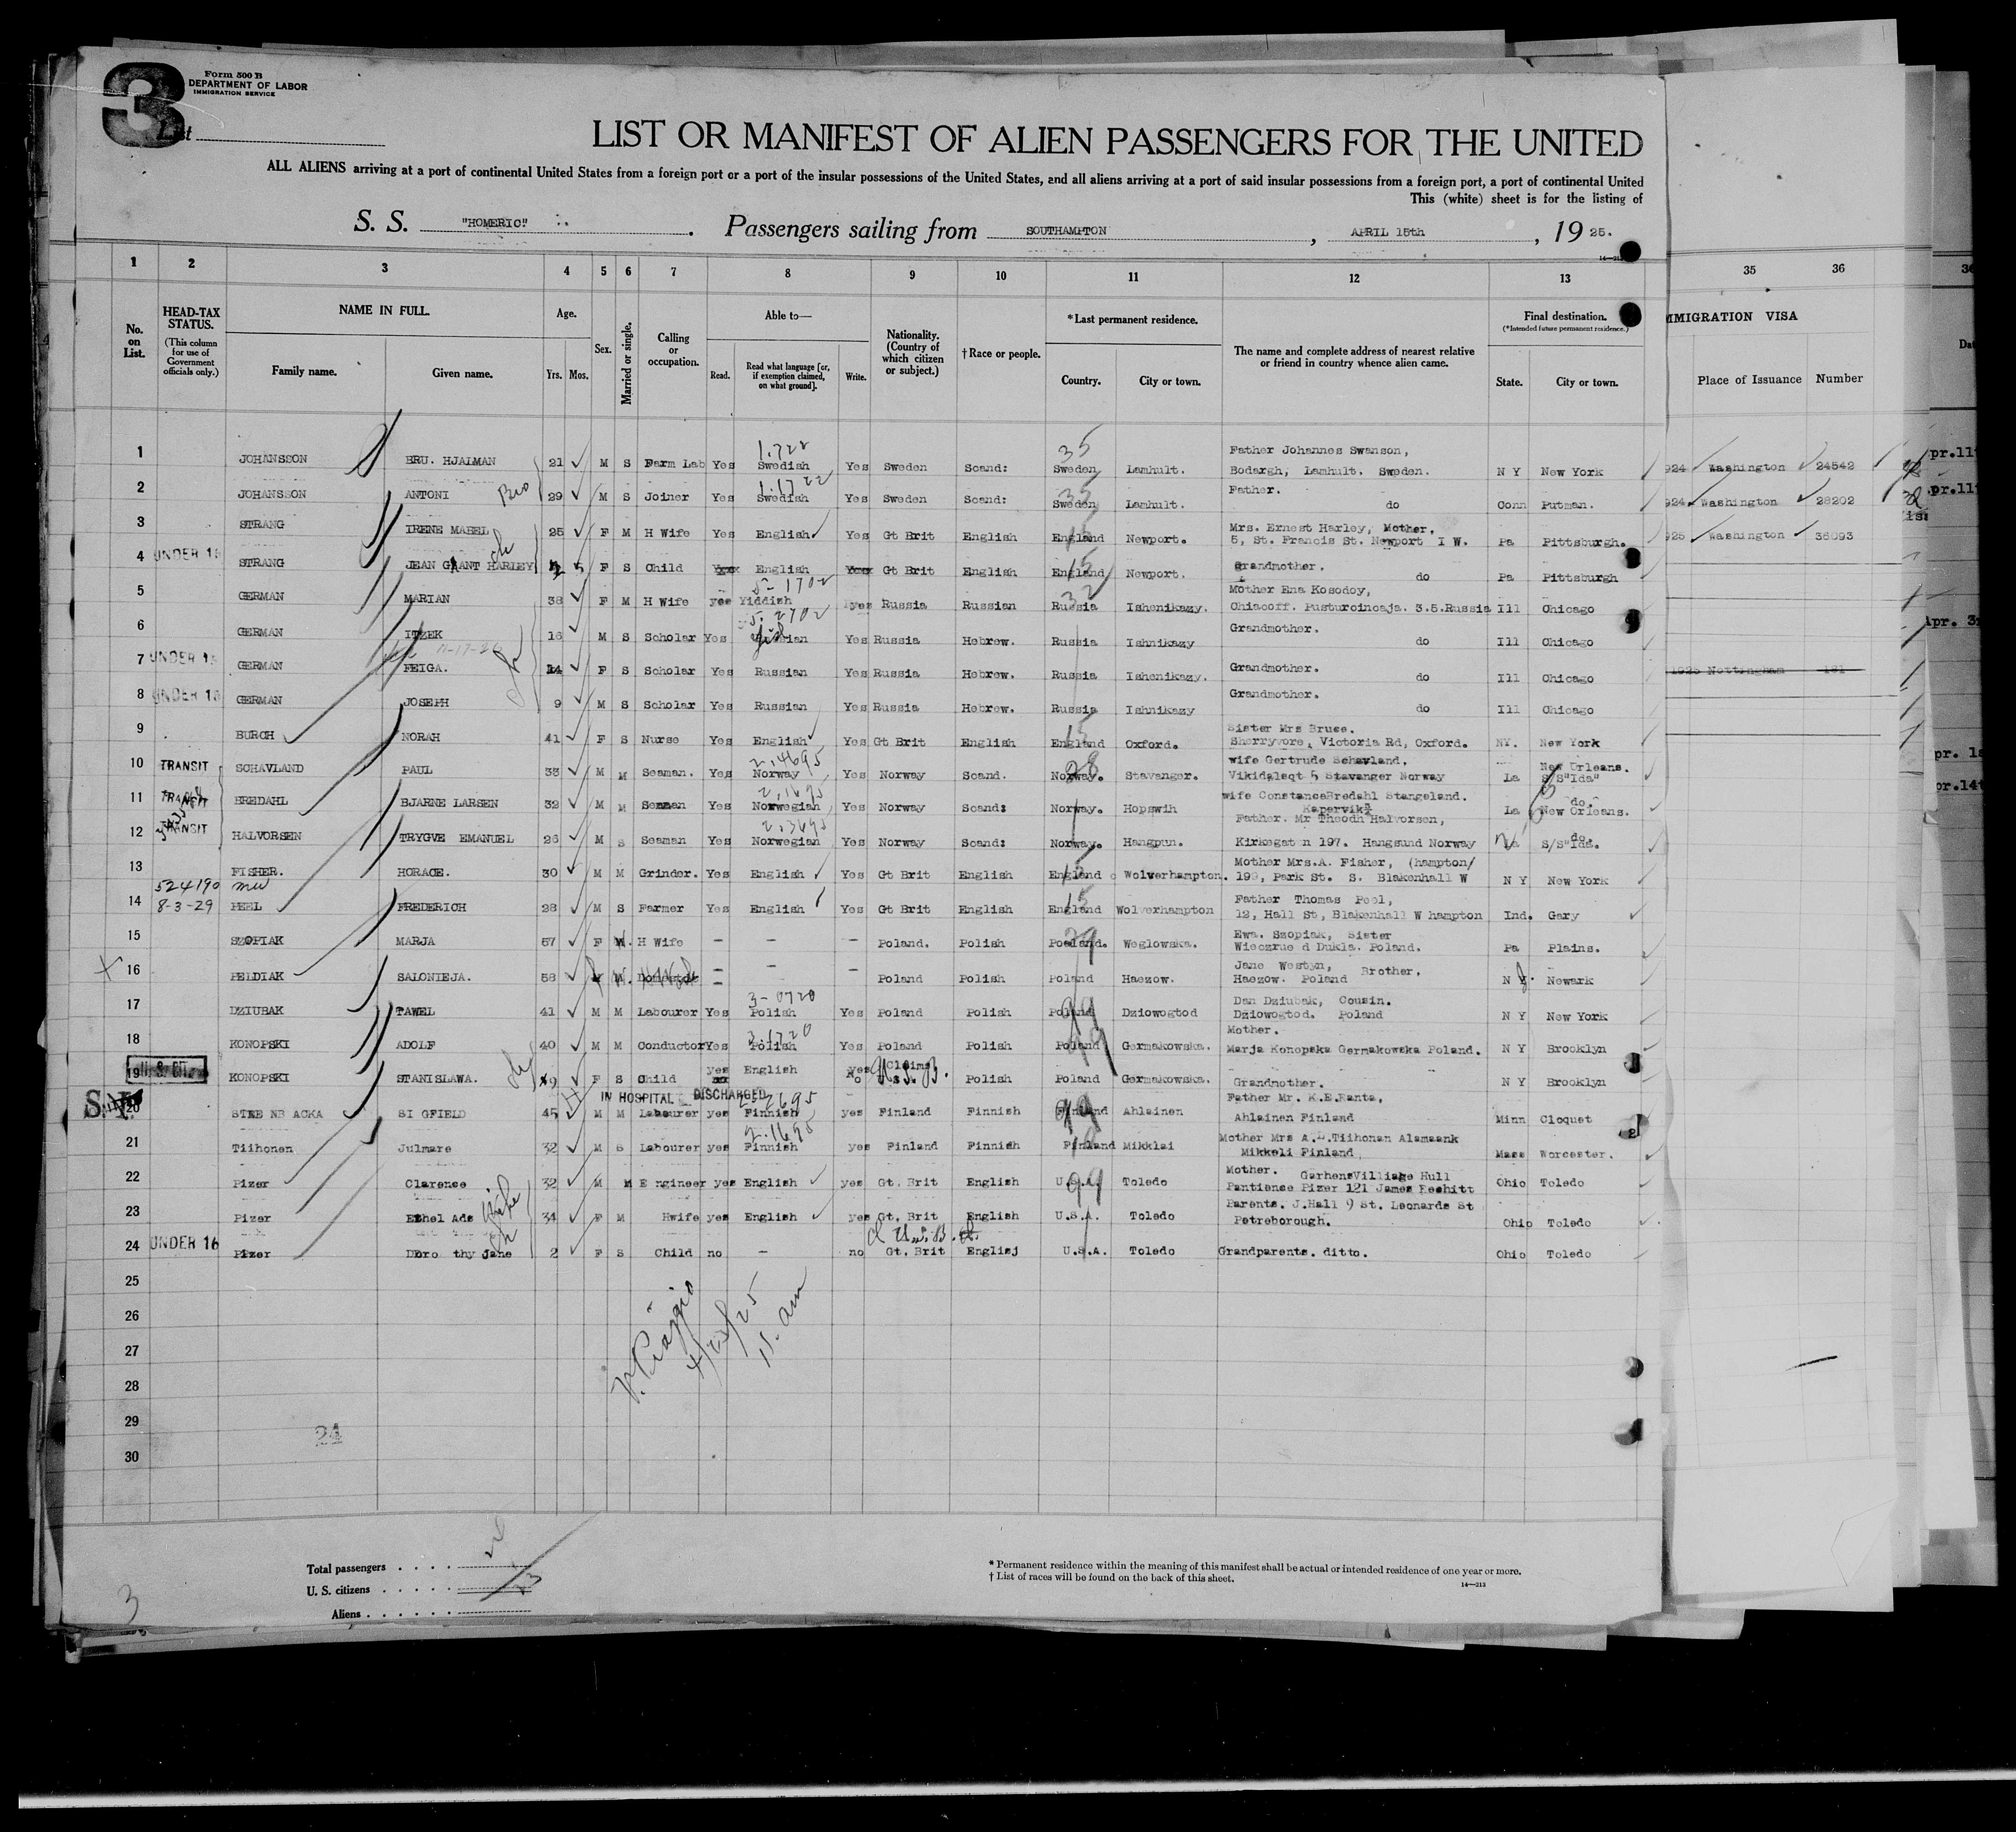 3
Form 500 B
DEPARTMENT OF LABOR
IMMIGRATION SERVICE
List
LIST OR MANIFEST OF ALIEN PASSENGERS FOR THE UNITED
ALL ALIENS arriving at a port of continental United States from a foreign port or a port of the insular possessions of the United States, and all aliens arriving at a port of said insular possessions from a foreign port, a port of continental United
This (white) sheet is for the listing of
S. S. "HOMERIC" . Passengers sailing from SOUTHAMPTON , APRIL 15th , 19 25.
1 2 3 4 5 6 7 8 9 10 11 12 13 35 36
No. on List.
HEAD-TAX STATUS.
(This column for use of Government officials only.)
NAME IN FULL.
Family name. Given name.
Age.
Yrs. Mos.
Sex.
Married or single.
Calling or occupation.
Able to—
Read. Read what language [or, if exemption claimed, on what ground]. Write.
Nationality. (Country of which citizen or subject.)
† Race or people.
*Last permanent residence.
Country. City or town.
The name and complete address of nearest relative or friend in country whence alien came.
Final destination.
(*Intended future permanent residence.)
State. City or town.
MMIGRATION VISA
Place of Issuance Number
1 JOHANSSON BRU. HJALMAN 21 M S Farm Lab Yes Swedish Yes Sweden Scand: Sweden Lamhult. Father Johannes Swanson, Bodargh, Lamhult. Sweden. N Y New York 924 Washington 24542
2 JOHANSSON ANTONI 29 M S Joiner Yes Swedish Yes Sweden Scand: Sweden Lamhult. Father. do Conn Putman. 924 Washington 28202
3 STRANG IRENE MABEL 25 F M H Wife Yes English Yes Gt Brit English England Newport. Mrs. Ernest Harley, Mother. 5, St. Francis St. Newport I W. Pa Pittsburgh. 925 Washington 36093
4 UNDER 16 STRANG JEAN GRANT HARLEY F S Child English Gt Brit English England Newport. Grandmother. do Pa Pittsburgh
5 GERMAN MARIAN 38 F M H Wife yes Yiddish yes Russia Russian Russia Ishenikazy. Mother Ena Kosodoy, Chiacoff. Pusturoincaja. 3.5.Russia Ill Chicago
6 GERMAN ITZEK 16 M S Scholar Yes Yes Russia Hebrew. Russia Ishnikazy Grandmother. do Ill Chicago
7 UNDER 16 GERMAN FEIGA. 14 F S Scholar Yes Russian Yes Russia Hebrew. Russia Ishenikazy. Grandmother. do Ill Chicago 1925 Nottingham 181
8 UNDER 16 GERMAN JOSEPH 9 M S Scholar Yes Russian Yes Russia Hebrew. Russia Ishnikazy Grandmother. do Ill Chicago
9 BURCH NORAH 41 F S Nurse Yes English Yes Gt Brit English England Oxford. Sister Mrs Bruce. Sherryvore, Victoria Rd, Oxford. NY. New York
10 TRANSIT SCHAVLAND PAUL 33 M M Seaman. Yes Norway Yes Norway Scand. Norway. Stavanger. wife Gertrude Schavland. Vikidalsgt 5 Stavanger Norway La New Orleans. S/S"Ida"
11 TRANSIT BREDAHL BJARNE LARSEN 32 M M Seaman Yes Norwegian Yes Norway Scand: Norway. Hopswih wife ConstanceBredahl Stangeland. Kapervik La do. New Orleans.
12 TRANSIT HALVORSEN TRYGVE EMANUEL 26 M S Seaman Yes Norwegian Yes Norway Scand: Norway. Hangpun. Father. Mr Theodh Halvorsen, Kirkegat n 197. Hangsund Norway La do. S/S"Ida.
13 FISHER. HORACE. 30 M M Grinder. Yes English Yes Gt Brit English England Wolverhampton. Mother Mrs.A. Fisher, (hampton/ 199, Park St. S. Blakenhall W N Y New York
524190
14 8-3-29 PEEL FREDERICH 28 M S Farmer Yes English Yes Gt Brit English England Wolverhampton Father Thomas Peel, 12, Hall St, Blakenhall W hampton Ind. Gary
15 SZOPIAK MARJA 57 F W. H Wife - - - Poland. Polish Poeland. Weglowska. Ewa. Szopiak, Sister Wieczrue d Dukla. Poland. Pa Plains.
16 PELDIAK SALONIEJA. 58 W. - - - Poland Polish Poland Haezow. Jane Westyn, Brother. Haezow. Poland N J. Newark
17 DZIUBAK PAWEL 41 M M Labourer Yes Polish Yes Poland Polish Poland Dziowogtod Dan Dziubak, Cousin. Dziowogtod. Poland N Y New York
18 KONOPSKI ADOLF 40 M M Conductor Yes Polish Yes Poland Polish Poland Germakowska. Mother. Marja Konopska Germakowska Poland. N Y Brooklyn
19 KONOPSKI STANISLAWA. 9 F S Child yes English yes Claims U.S.B. Polish Poland Germakowska. Grandmother. N Y Brooklyn
IN HOSPITAL DISCHARGED
20 STRE NB ACKA SI GFIELD 45 M M Labourer yes Finnish yes Finland Finnish Finland Ahlainen Father Mr. K.E.Ranta, Ahlainen Finland Minn Cloquet
21 Tiihonen Julmare 32 M S Labourer yes Finnish yes Finland Finnish Finland Mikklai Mother Mrs A.L.Tiihonan Alamaank Mikkeli Finland Mass Worcester.
22 Pizer Clarence 32 M M E ngineer yes English yes Gt. Brit English U.S.A. Toledo Mother. GarhensVilliage Hull Pantience Pizer 121 James Reshitt Ohio Toledo
23 Pizer Ethel Ada wife 34 F M Hwife yes English yes Gt. Brit English U.S.A. Toledo Parents. J.Hall 9 St. Leonards St Petreborough. Ohio Toledo
24 UNDER 16 Pizer Doro thy Jane 2 F S Child no - no Gt. Brit Englisj U.S.A. Toledo Grandparents. ditto. Ohio Toledo
25
26
27
28
29
30
24
V. Piaggio
11. am
Total passengers
U. S. citizens
Aliens
3
* Permanent residence within the meaning of this manifest shall be actual or intended residence of one year or more.
† List of races will be found on the back of this sheet.
14—213